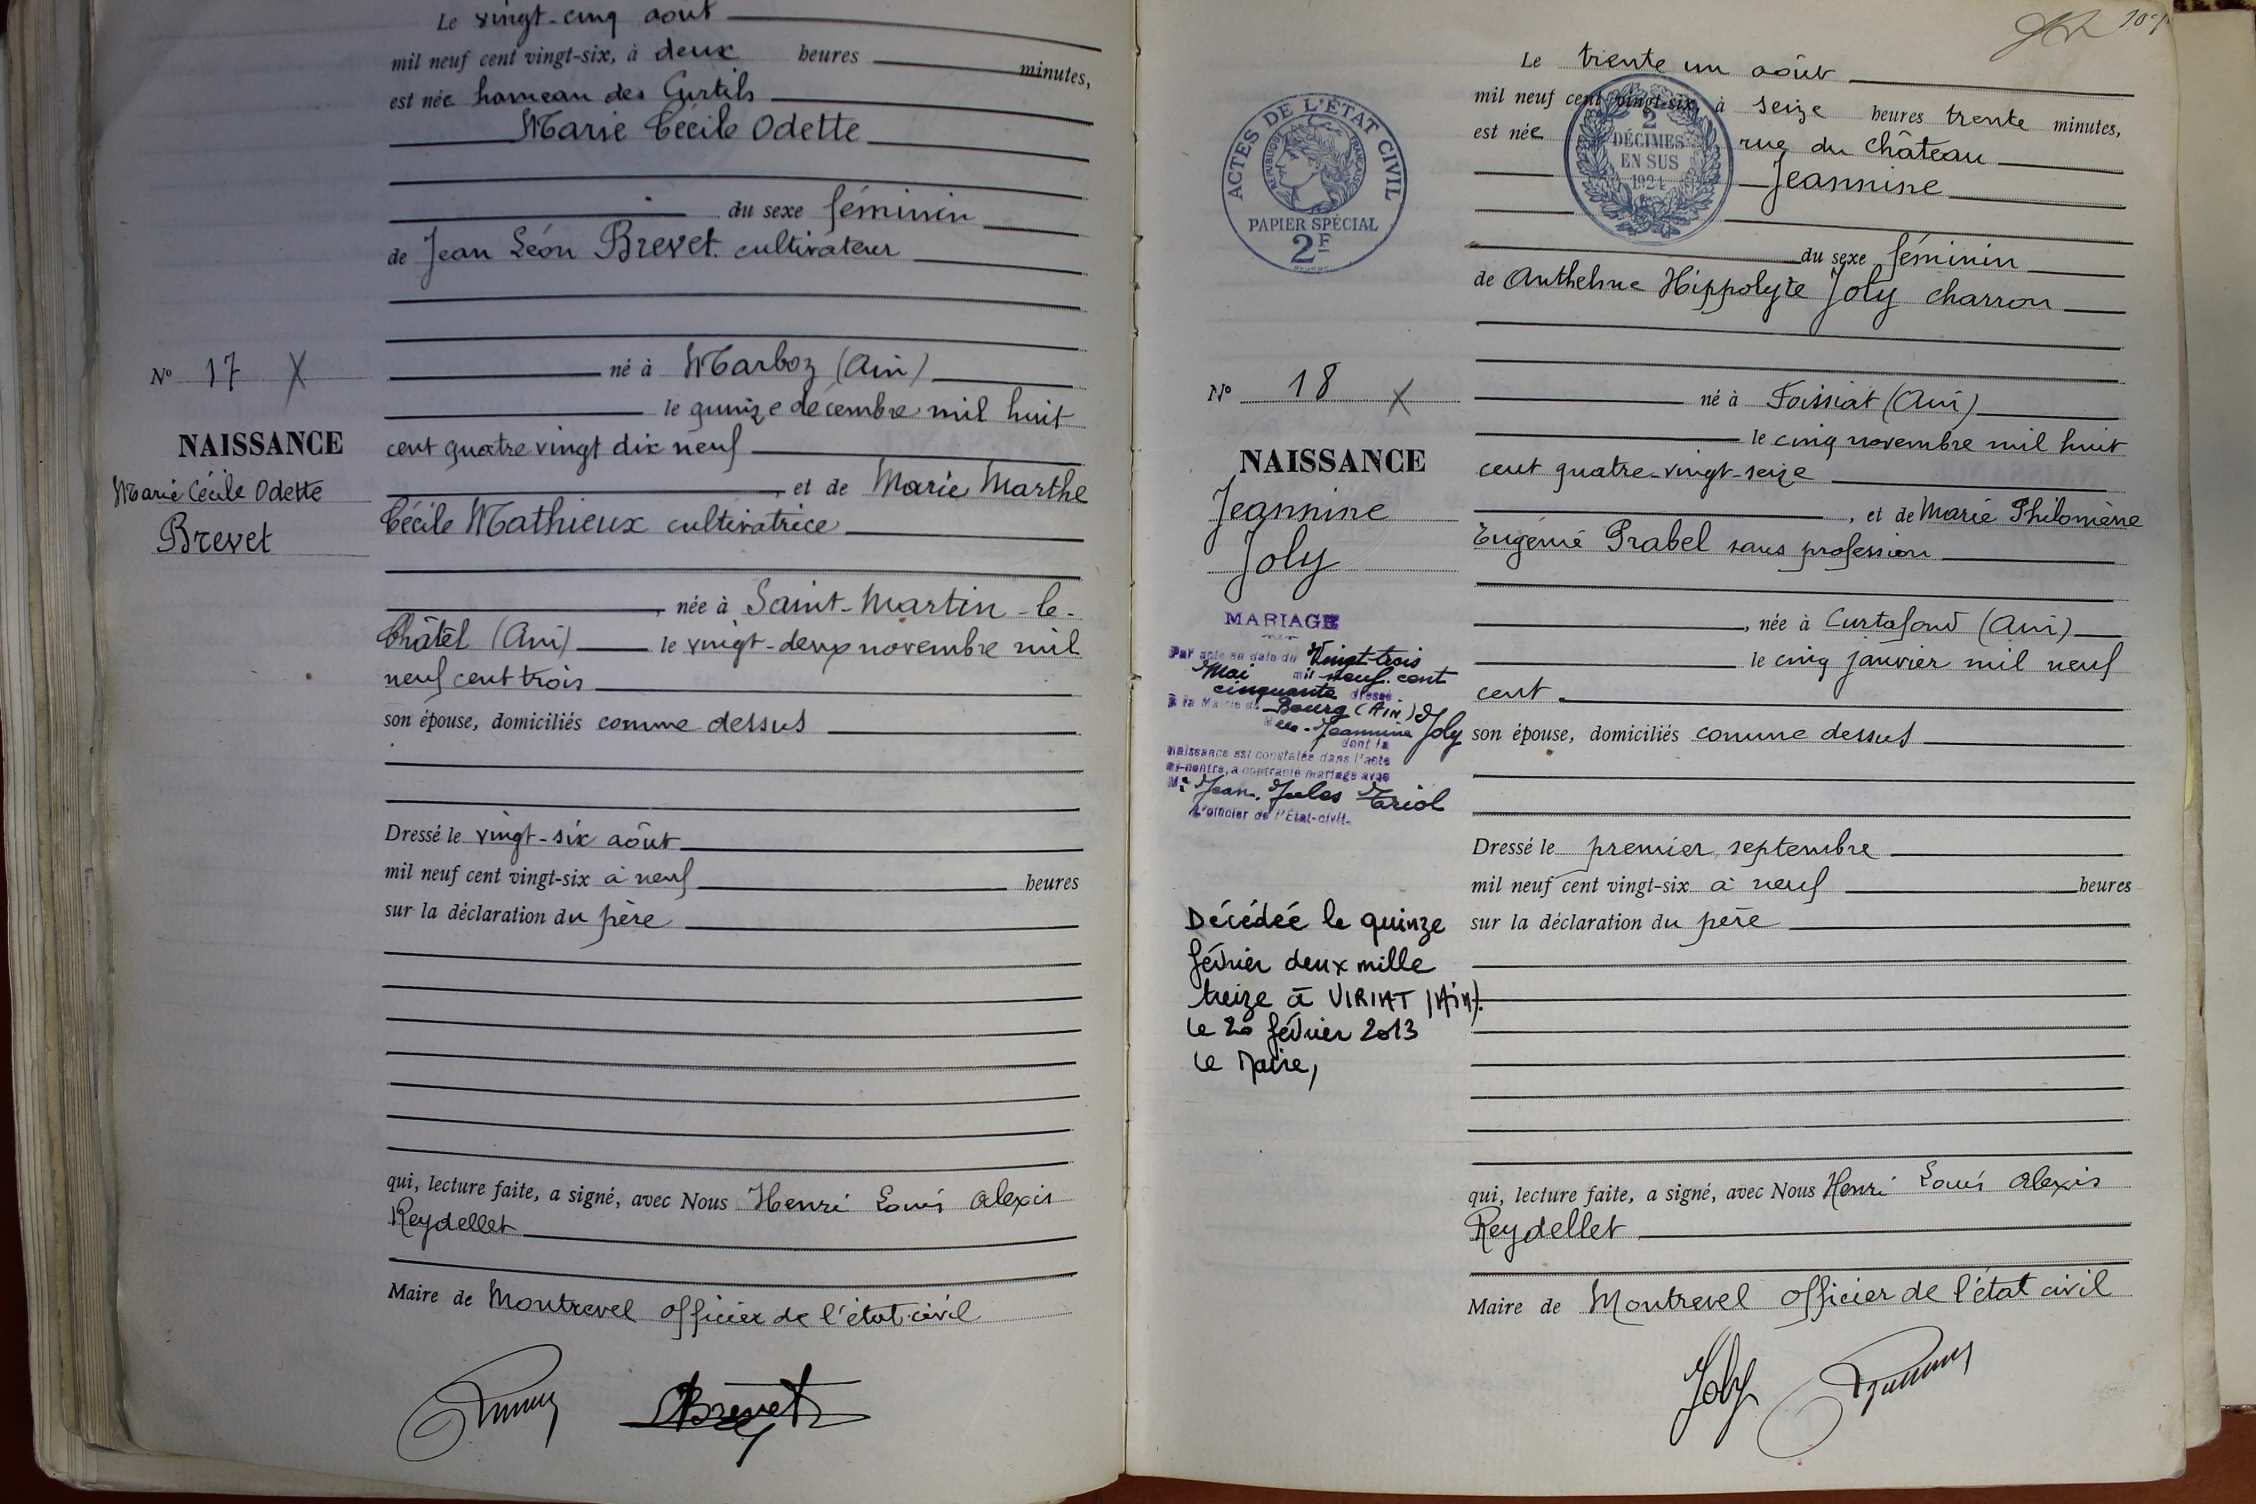 Le vingt-cinq août
mil neuf cent vingt-six, à deux heures minutes,
est née hameau des Curtils
Marie Cécile Odette
du sexe féminin
de Jean Léon Brevet cultivateur
né à Marboz (Ain)
le quinze décembre mil huit
cent quatre vingt dix neuf
, et de Marie Marthe
Cécile Mathieux cultivatrice
, née à Saint-Martin-le-
Châtel (Ain) le vingt-deux novembre mil
neuf cent trois
son épouse, domiciliés comme dessus
Dressé le vingt-six août
mil neuf cent vingt-six à neuf heures
sur la déclaration du père
qui, lecture faite, a signé, avec Nous Henri Louis Alexis
Reydellet
Maire de Montrevel officier de l'état civil
Brevet
N° 17 X
NAISSANCE
Marie Cécile Odette
Brevet
Le trente un août
mil neuf cent vingt-six, à seize heures trente minutes,
est née rue du Château
Jeannine
du sexe féminin
de Anthelme Hippolyte Joly charron
né à Foissiat (Ain)
le cinq novembre mil huit
cent quatre-vingt-seize
, et de Marie Philomène
Eugénie Prabel sans profession
, née à Curtafond (Ain)
le cinq janvier mil neuf
cent
son épouse, domiciliés comme dessus
Dressé le premier septembre
mil neuf cent vingt-six à neuf heures
sur la déclaration du père
qui, lecture faite, a signé, avec Nous Henri Louis Alexis
Reydellet
Maire de Montrevel officier de l'état civil
Joly
ACTES DE L'ÉTAT CIVIL
RÉPUBLIQUE FRANÇAISE
PAPIER SPÉCIAL
2F
2
DÉCIMES
EN SUS
1924
N° 18 X
NAISSANCE
Jeannine
Joly
MARIAGE
Par acte en date du Vingt-trois
Mai mil neuf cent
cinquante dressé
à la Mairie de Bourg (Ain)
Melle Jeannine Joly
dont la
naissance est constatée dans l'acte
ci-contre, a contracté mariage avec
Mr Jean, Jules Tariol
L'officier de l'État-civil.
Décédée le quinze
février deux mille
treize à VIRIAT (Ain).
le 20 février 2013
Le Maire,